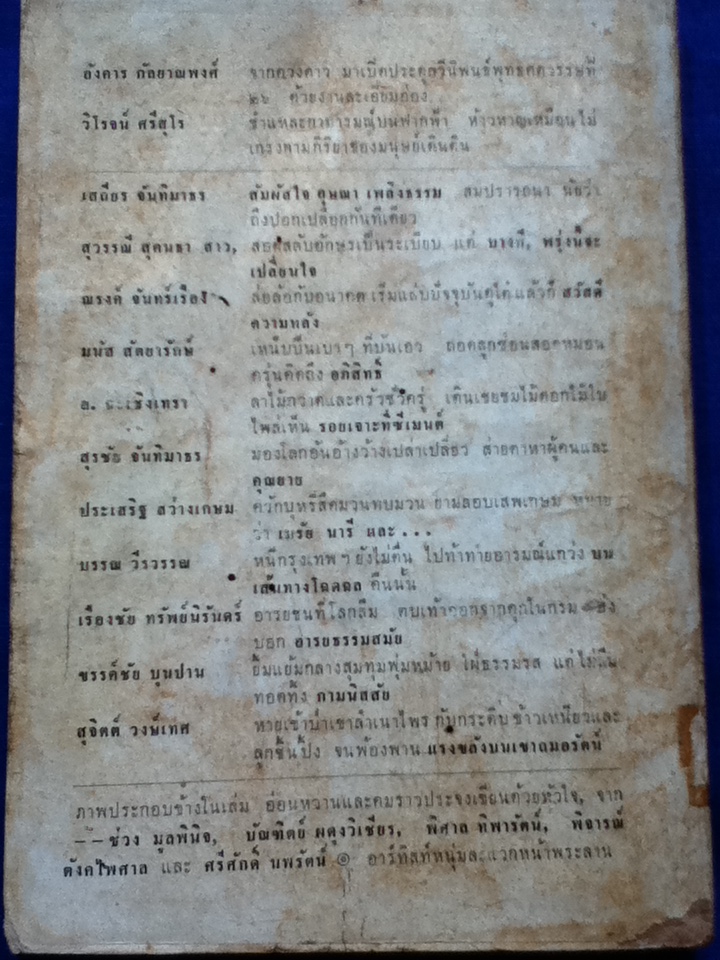 อังคาร กัลยาณพงศ์ จากดวงดาว มาเปิดประตูกวีนิพนธ์พุทธศตวรรษที่
๒๖ ด้วยงานละเอียดอ่อง
วิโรจน์ ศรีสุโร ชำแหละอารมณ์บนฟากฟ้า ห้าวหาญเหมือนไม่
เกรงขามกิริยาของมนุษย์เดินดิน
เสถียร จันทิมาธร สัมผัสใจ อุษณา เพลิงธรรม สมปรารถนา นัยว่า
ถึงปอกเปลือกกันทีเดียว
สุวรรณี สุคนธา สาว, สลับอักษรเป็นระเบียบ แต่ บางที, พรุ่งนี้จะ
เปลี่ยนใจ
ณรงค์ จันทร์เรือง ล้อกับอนาคต เริ่มแต่ปัจจุบันก็ได้ แล้วก็ สวัสดี
ความหลัง
มนัส สัตยารักษ์ เหน็บปืนเบาๆ ที่บั้นเอว ถอดลูกซ้อนสอดหมอน
ครุ่นคิดถึง อภิสิทธิ์
อ. ฉะเชิงเทรา ลาไม้กวาดและครัวชั่วครู่ เดินเชยชมไม้ดอกไม้ใบ
ไพล่เห็น รอยเจาะที่ซีเมนต์
สุรชัย จันทิมาธร มองโลกอันอ้างว้างเปล่าเปลี่ยว ส่ายตาหาผู้คนและ
คุณยาย
ประเสริฐ สว่างเกษม ควักบุหรี่สี่มวนพบมวน ยามลอบเสพเกษม หมาย
ว่า เมรัย นารี และ ...
บรรณ วีรวรรณ หนีกรุงเทพฯ ยังไม่คืน ไปท้าทายอารมณ์แกว่ง บน
เส้นทางโฉดฉล คืนนั้น
เรืองชัย ทรัพย์นิรันดร์ อารยชนที่โลกลืม ตบเท้าออกจากคุกในกรม
บอก อารยธรรมสมัย
ขรรค์ชัย บุนปาน ยิ้มแย้มกลางสุมทุมพุ่มหม้าย ใฝ่ธรรมรส แต่ไม่ลืม
ทอดทิ้ง กามนิสสัย
สุจิตต์ วงษ์เทศ หายเข้าป่าเขาลำเนาไพร กับกระติบข้าวเหนียวและ
ลูกชิ้นปิ้ง จนพ้องพาน แรงขลังบนเขาถมอรัตน์
ภาพประกอบข้างในเล่ม อ่อนหวานและคมราวประจงเขียนด้วยหัวใจ, จาก
-- ช่วง มูลพินิจ, บัณฑิตย์ ผดุงวิเชียร, พิศาล ทิพารัตน์, พิจารณ์
ตังคไพศาล และ ศรีศักดิ์ นพรัตน์ ๏ อาร์ทิสท์หนุ่มละแวกหน้าพระลาน